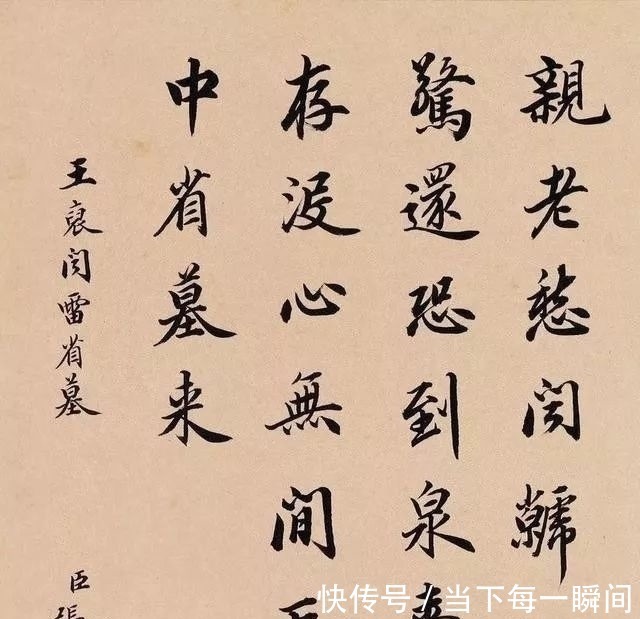 親老愁聞
驚還恐到泉
存没心無間
中省墓来
王裒聞雷省墓
臣張
快传号/当下每一瞬间